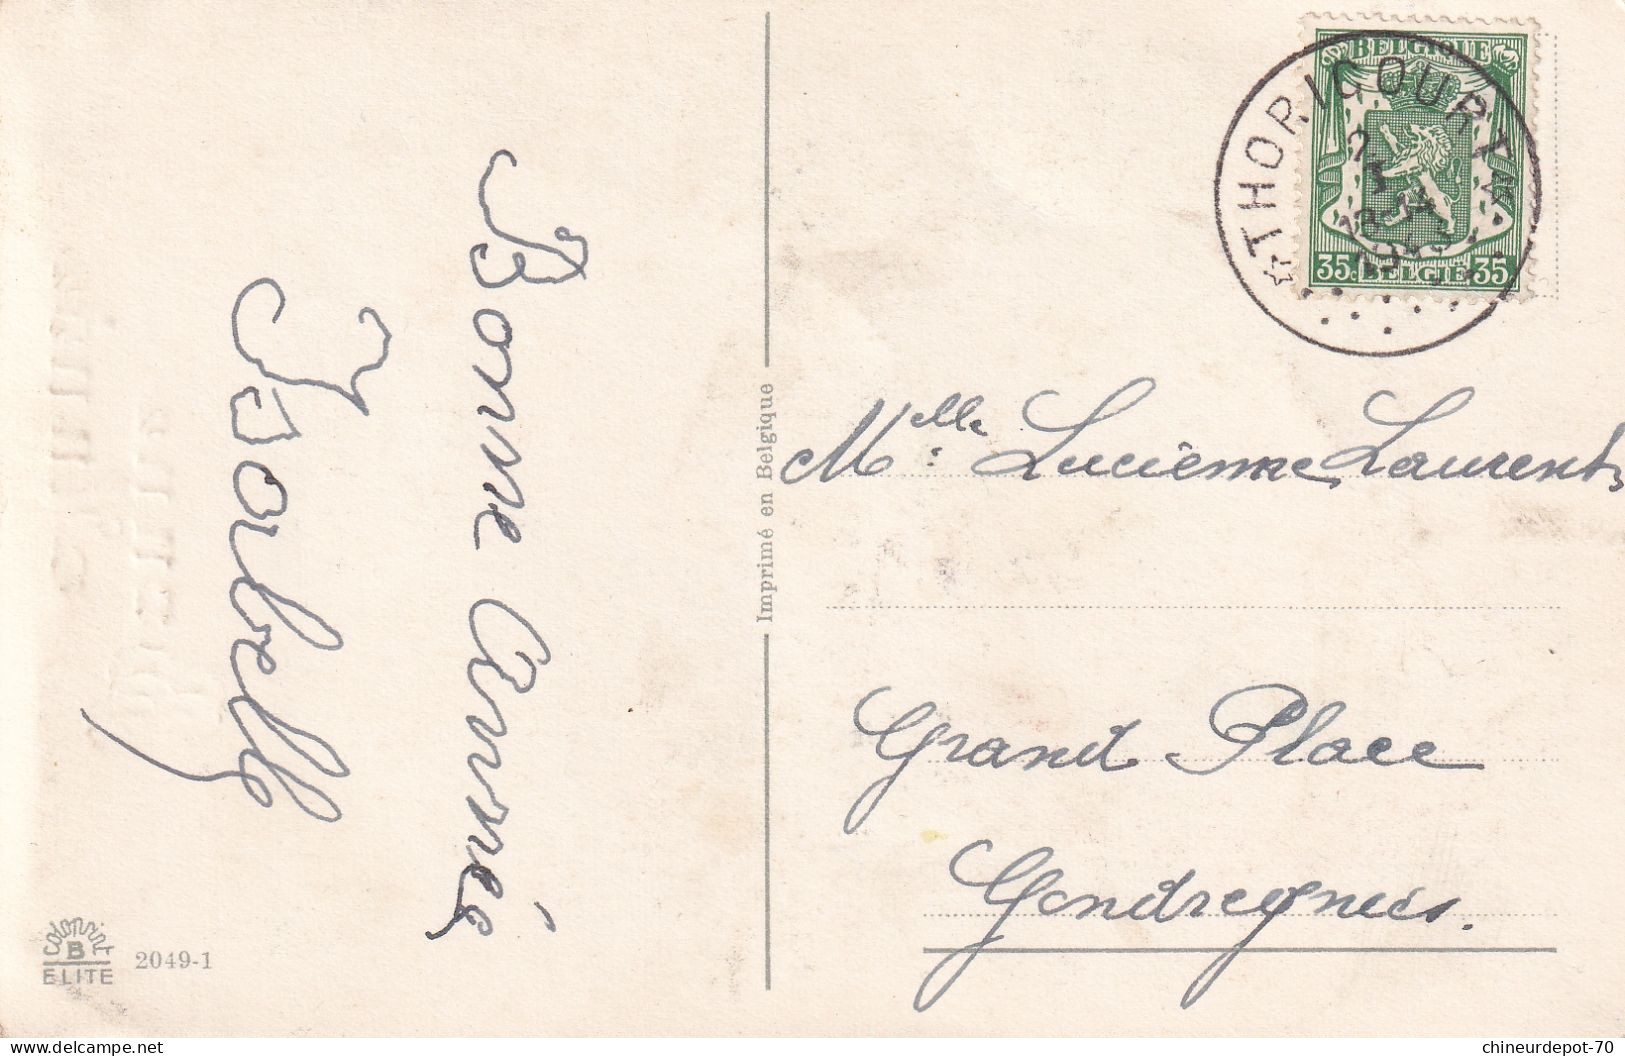 Bonne Année
Isabelle
Imprimé en Belgique
Colorprint
B
ELITE
2049-1
BELGIQUE
35c BELGIË 35
THORICOURT
13-14
Mlle: Lucienne Laurent
Grand Place
Gondregnies.
chineurdepot-70
www.delcampe.net